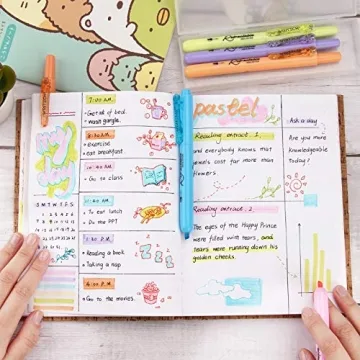 my
day
M T W T F S S
7:00 AM
→Get out of bed.
→wash gargle.
8:30 AM
→Exercise
→eat breakfast
→Go to class
→To eat lunch
→Do the PPT
→Reading a book
→Taking a nap
→Go to the movies.
pastel
Reading extract 1.
and everybody knows that
jewels cost far more than
flowers.
Reading extract 2.
The eyes of the Happy Prince
were filled with tears, and
tears were running down his
golden cheeks.
Ask a day
Are you more
knowledgeable
today?